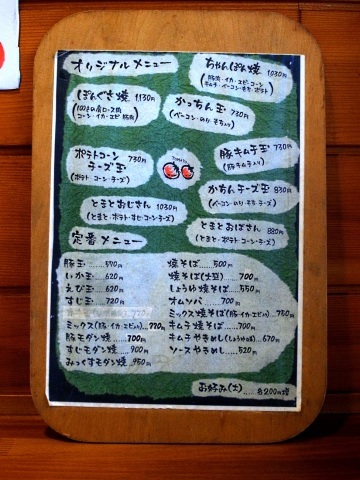 オリジナルメニュー
ちゃんぽん焼 1030円
(豚肉・イカ・エビ・コーン
キムチ・ベーコン・モチ・ポテト)
ぽんぐさ焼 1130円
コーン・イカ・エビ 豚肉)
かっちん玉 730円
(ベーコン・のり モチ入り)
ポテトコーン
チーズ玉 730円
(ポテト コーン・チーズ)
豚キムチ玉 730円
(豚キムチ入り)
かちんチーズ玉 830円
(ベーコン・のり モチ・チーズ)
とまとおじさん 1030円
(とまと・ポテト・すじ・コーン・チーズ)
とまとおばさん 880円
(とまと・ポテト・コーン・チーズ)
定番メニュー
豚玉……590円
いか玉……620円
えび玉……620円
すじ玉……720円
ミックス(豚・イカ・エビ入り)…770円
豚モダン焼……700円
すじモダン焼……900円
みっくすモダン焼…950円
焼そば……500円
焼そば(大盛)……700円
しょうゆ焼そば……550円
オムソバ……700円
ミックス焼そば(豚・イカ・エビ)…750円
キムチ焼そば……700円
キムチやきめし(しょうゆ味)…670円
ソースやきめし……520円
お好み(大)……各200円増